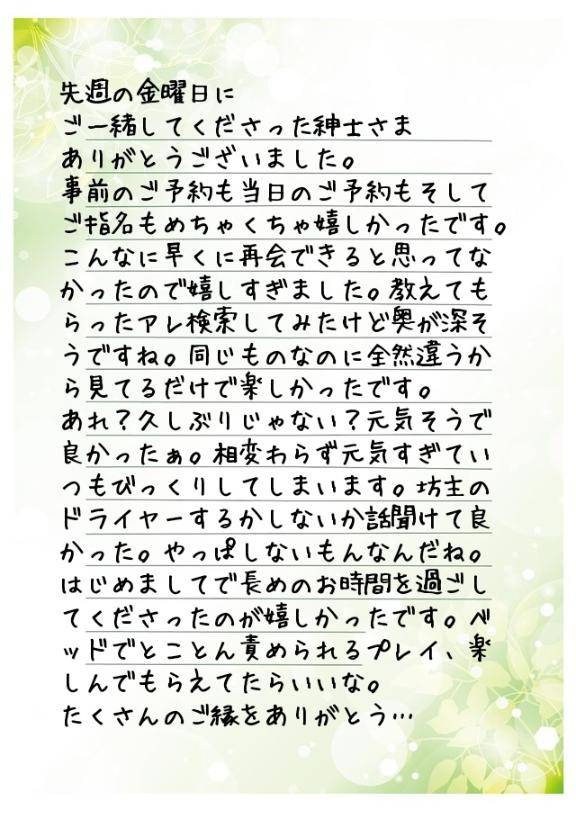 先週の金曜日に
ご一緒してくださった紳士さま
ありがとうございました。
事前のご予約も当日のご予約もそして
ご指名もめちゃくちゃ嬉しかったです。
こんなに早くに再会できると思ってな
かったので嬉しすぎました。教えても
らったアレ検索してみたけど奥が深そ
うですね。同じものなのに全然違うか
ら見てるだけで楽しかったです。
あれ？久しぶりじゃない？元気そうで
良かったぁ。相変わらず元気すぎてい
つもびっくりしてしまいます。坊主の
ドライヤーするかしないか話聞けて良
かった。やっぱしないもんなんだね。
はじめましてで長めのお時間を過ごし
てくださったのが嬉しかったです。ベ
ッドでとことん責められるプレイ、楽
しんでもらえてたらいいな。
たくさんのご縁をありがとう…